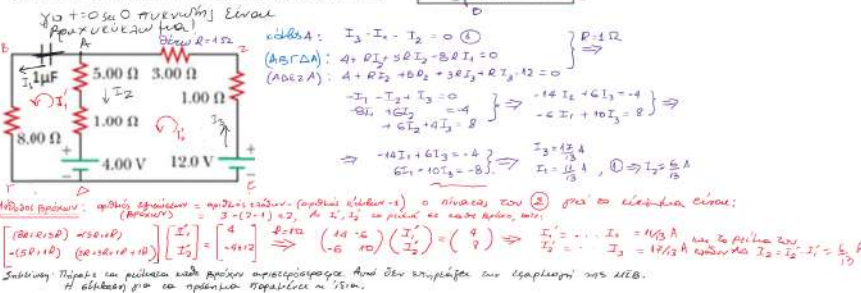 για t=0 sec ο πυκνωτής είναι
βραχυκύκλωμα!
B
A
θέτω R=1Ω
Z
I₁
1μF
5.00 Ω
3.00 Ω
I₁'
I₂
1.00 Ω
1.00 Ω
I₂'
I₃
8.00 Ω
4.00 V
12.0 V
Γ
Δ
E
κόμβος A: I₃-I₁-I₂=0 ①
(ΑΒΓΔΑ): 4+RI₂+5RI₂-8RI₁=0
(ΑΔΕΖΑ): 4+RI₂+5RI₂+3RI₃+RI₃-12=0
R=1Ω
⇒
-I₁-I₂+I₃=0
-8I₁+6I₂=-4
+6I₂+4I₃=8
⇒ -14I₁+6I₃=-4
-6I₁+10I₃=8 ⇒
⇒ -14I₁+6I₃=-4
6I₁-10I₃=-8 ⇒ I₃=17/13 A
I₁=11/13 A, ① ⇒ I₂=6/13 A
Μέθοδος βρόχων: αριθμός εξισώσεων = αριθμός κλάδων - (αριθμός κόμβων -1) ο πίνακας του ② για το κύκλωμα είναι:
(βρόχων) = 3-(2-1)=2,
[(8R+R+5R) -(5R+R)] [I₁'] = [4]
[-(5R+R) (5R+3R+R+R)] [I₂'] [-4+12]
R=1Ω ⇒ (14 -6) (I₁') = (4)
(-6 10) (I₂') (8)
⇒ I₁'=... I₁=11/13 A
I₂'=... I₃=17/13 A I₂=I₂'-I₁'=6/13 A
Σημείωση: Πήραμε τα ρεύματα κάθε βρόχου αριστερόστροφα. Αυτό δεν επηρεάζει την εφαρμογή της
Η σύμβαση για τα πρόσημα παραμένει η ίδια.